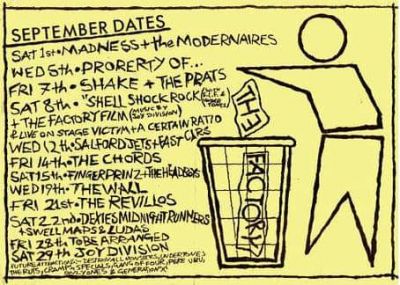 SEPTEMBER DATES
SAT 1st • MADNESS + the MODERNAIRES
WED 5th • PRORERTY OF...
FRI 7th • SHAKE + THE PRATS
SAT 8th • "SHELL SHOCK ROCK
+ THE FACTORY FILM (MUSIC BY JOY DIVISION)
& LIVE ON STAGE VICTIM + A CERTAIN RATIO
WED 12th • SALFORD JETS + FAST CARS
FRI 14th • THE CHORDS
SAT 15th • FINGERPRINTZ + THE HEADBOYS
WED 19th • THE WALL
FRI 21st • THE REVILLOS
SAT 22nd • DEXIES MIDNIGHT RUNNERS
+ SWELL MAPS & LUDAS
FRI 28th TO BE ARRANGED
SAT 29th JOY DIVISION
FUTURE ATTRACTIONS • DESTROY ALL MONSTERS, UNDERTONES
THE RUTS, CRAMPS, SPECIALS, GANG OF FOUR, PERE UBU,
GENERATION X
THE
FACTORY